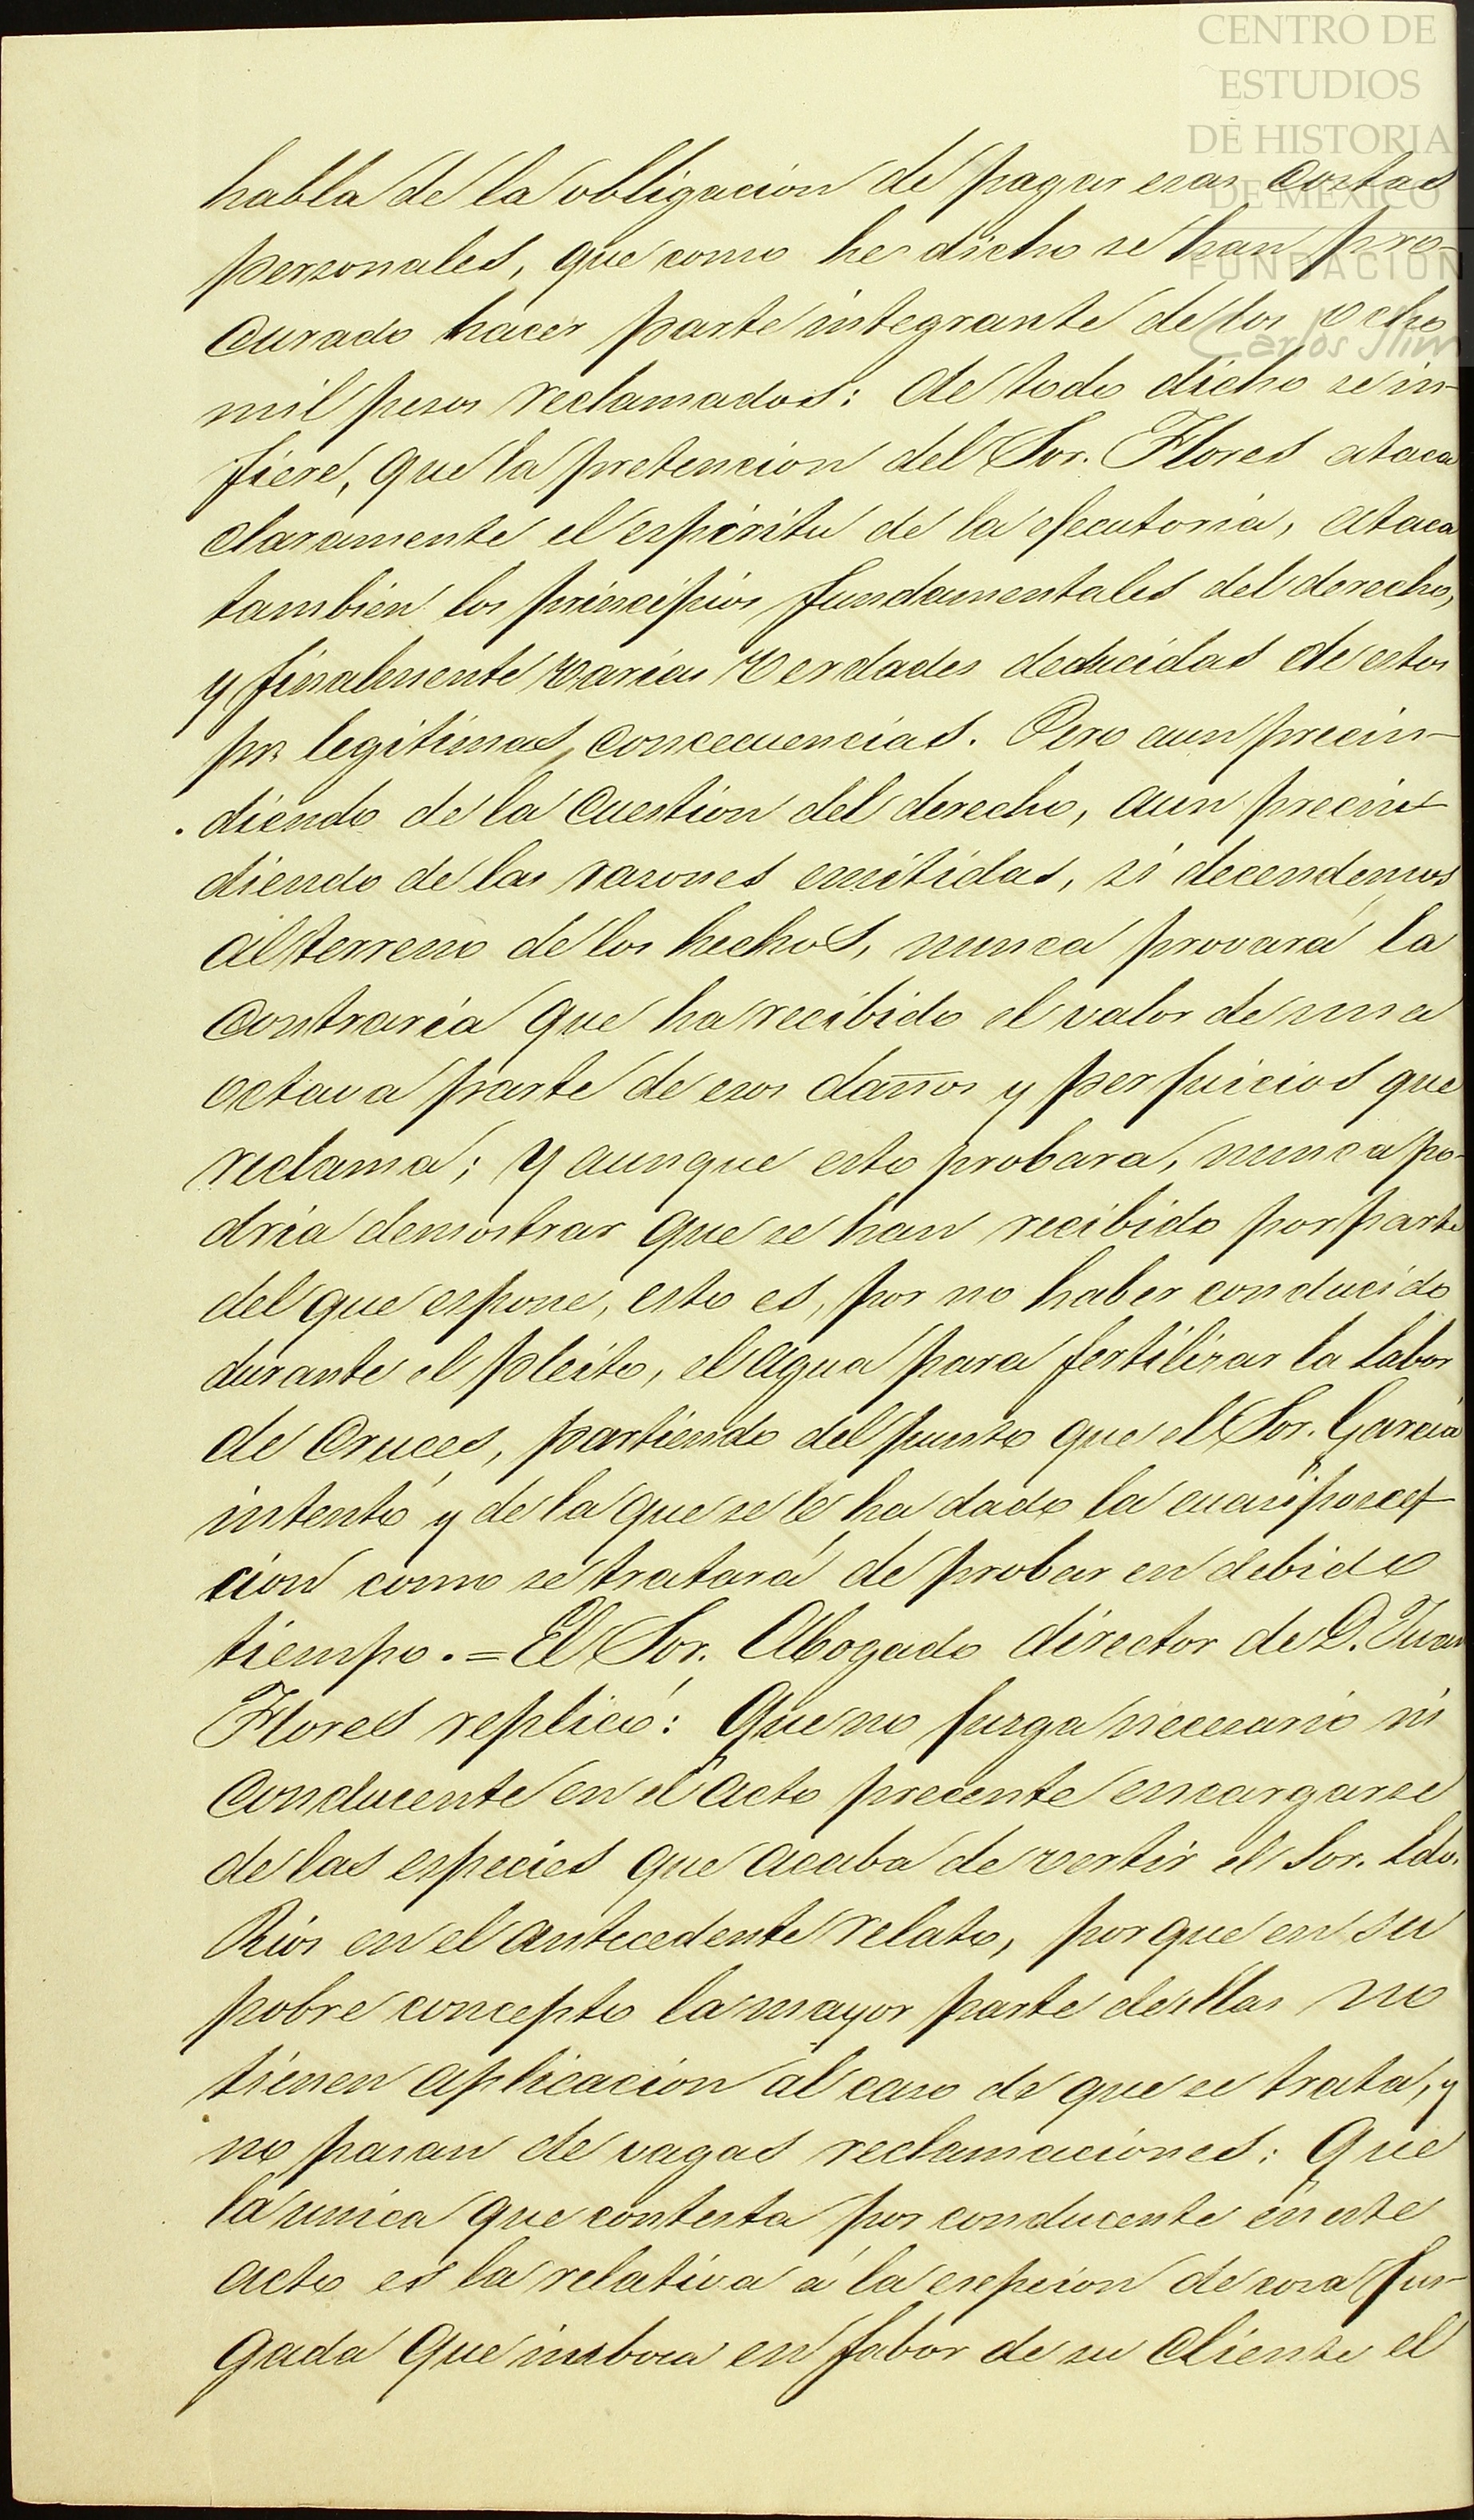 CENTRO DE
ESTUDIOS
DE HISTORIA
DE MÉXICO
FUNDACIÓN
Carlos Slim
habla de la obligacion de pagar esas costas
personales, que como he dicho se han pro-
curado hacer parte integrante de los ocho
mil pesos reclamados: de todo dicho se in-
fiere, que la pretencion del Sor. Flores ataca
claramente el espiritu de la ejecutoria, ataca
tambien los principios fundamentales del derecho,
y finalmente varias verdades deducidas de estos
pr. legitimas concecuencias. Pero aun precin-
diendo de la cuestion del derecho, aun precin-
diendo de las rasones emitidas, si decendemos
al terreno de los hechos, nunca provará la
contraria que ha recibido el valor de una
octava parte de esos daños y perjuicios que
reclama; y aunque esto probara, nunca po-
dria demostrar que se han recibido por parte
del que espone, esto es, por no haber conducido
durante el pleito, el agua para fertilizar la labor
de Cruces, partiendo del punto que el Sor. Garcia
intentó y de la que se le ha dado la cuasiposce-
cion como se tratará de probar en debido
tiempo.=El Sor. Abogado director de D. Juan
Flores replicó: Que no jusga necesario ni
conducente en el acto precente encargarse
de las especies que acaba de vertir el Sor. Ldo.
Rios en el antecedente relato, porque en su
pobre concepto la mayor parte de ellas no
tienen aplicacion al caso de que se trata, y
no pasan de vagas reclamaciones: Que
la unica que contesta por conducente en este
acto es la relativa á la esepcion de cosa jus-
gada que imboca en fabor de su cliente el